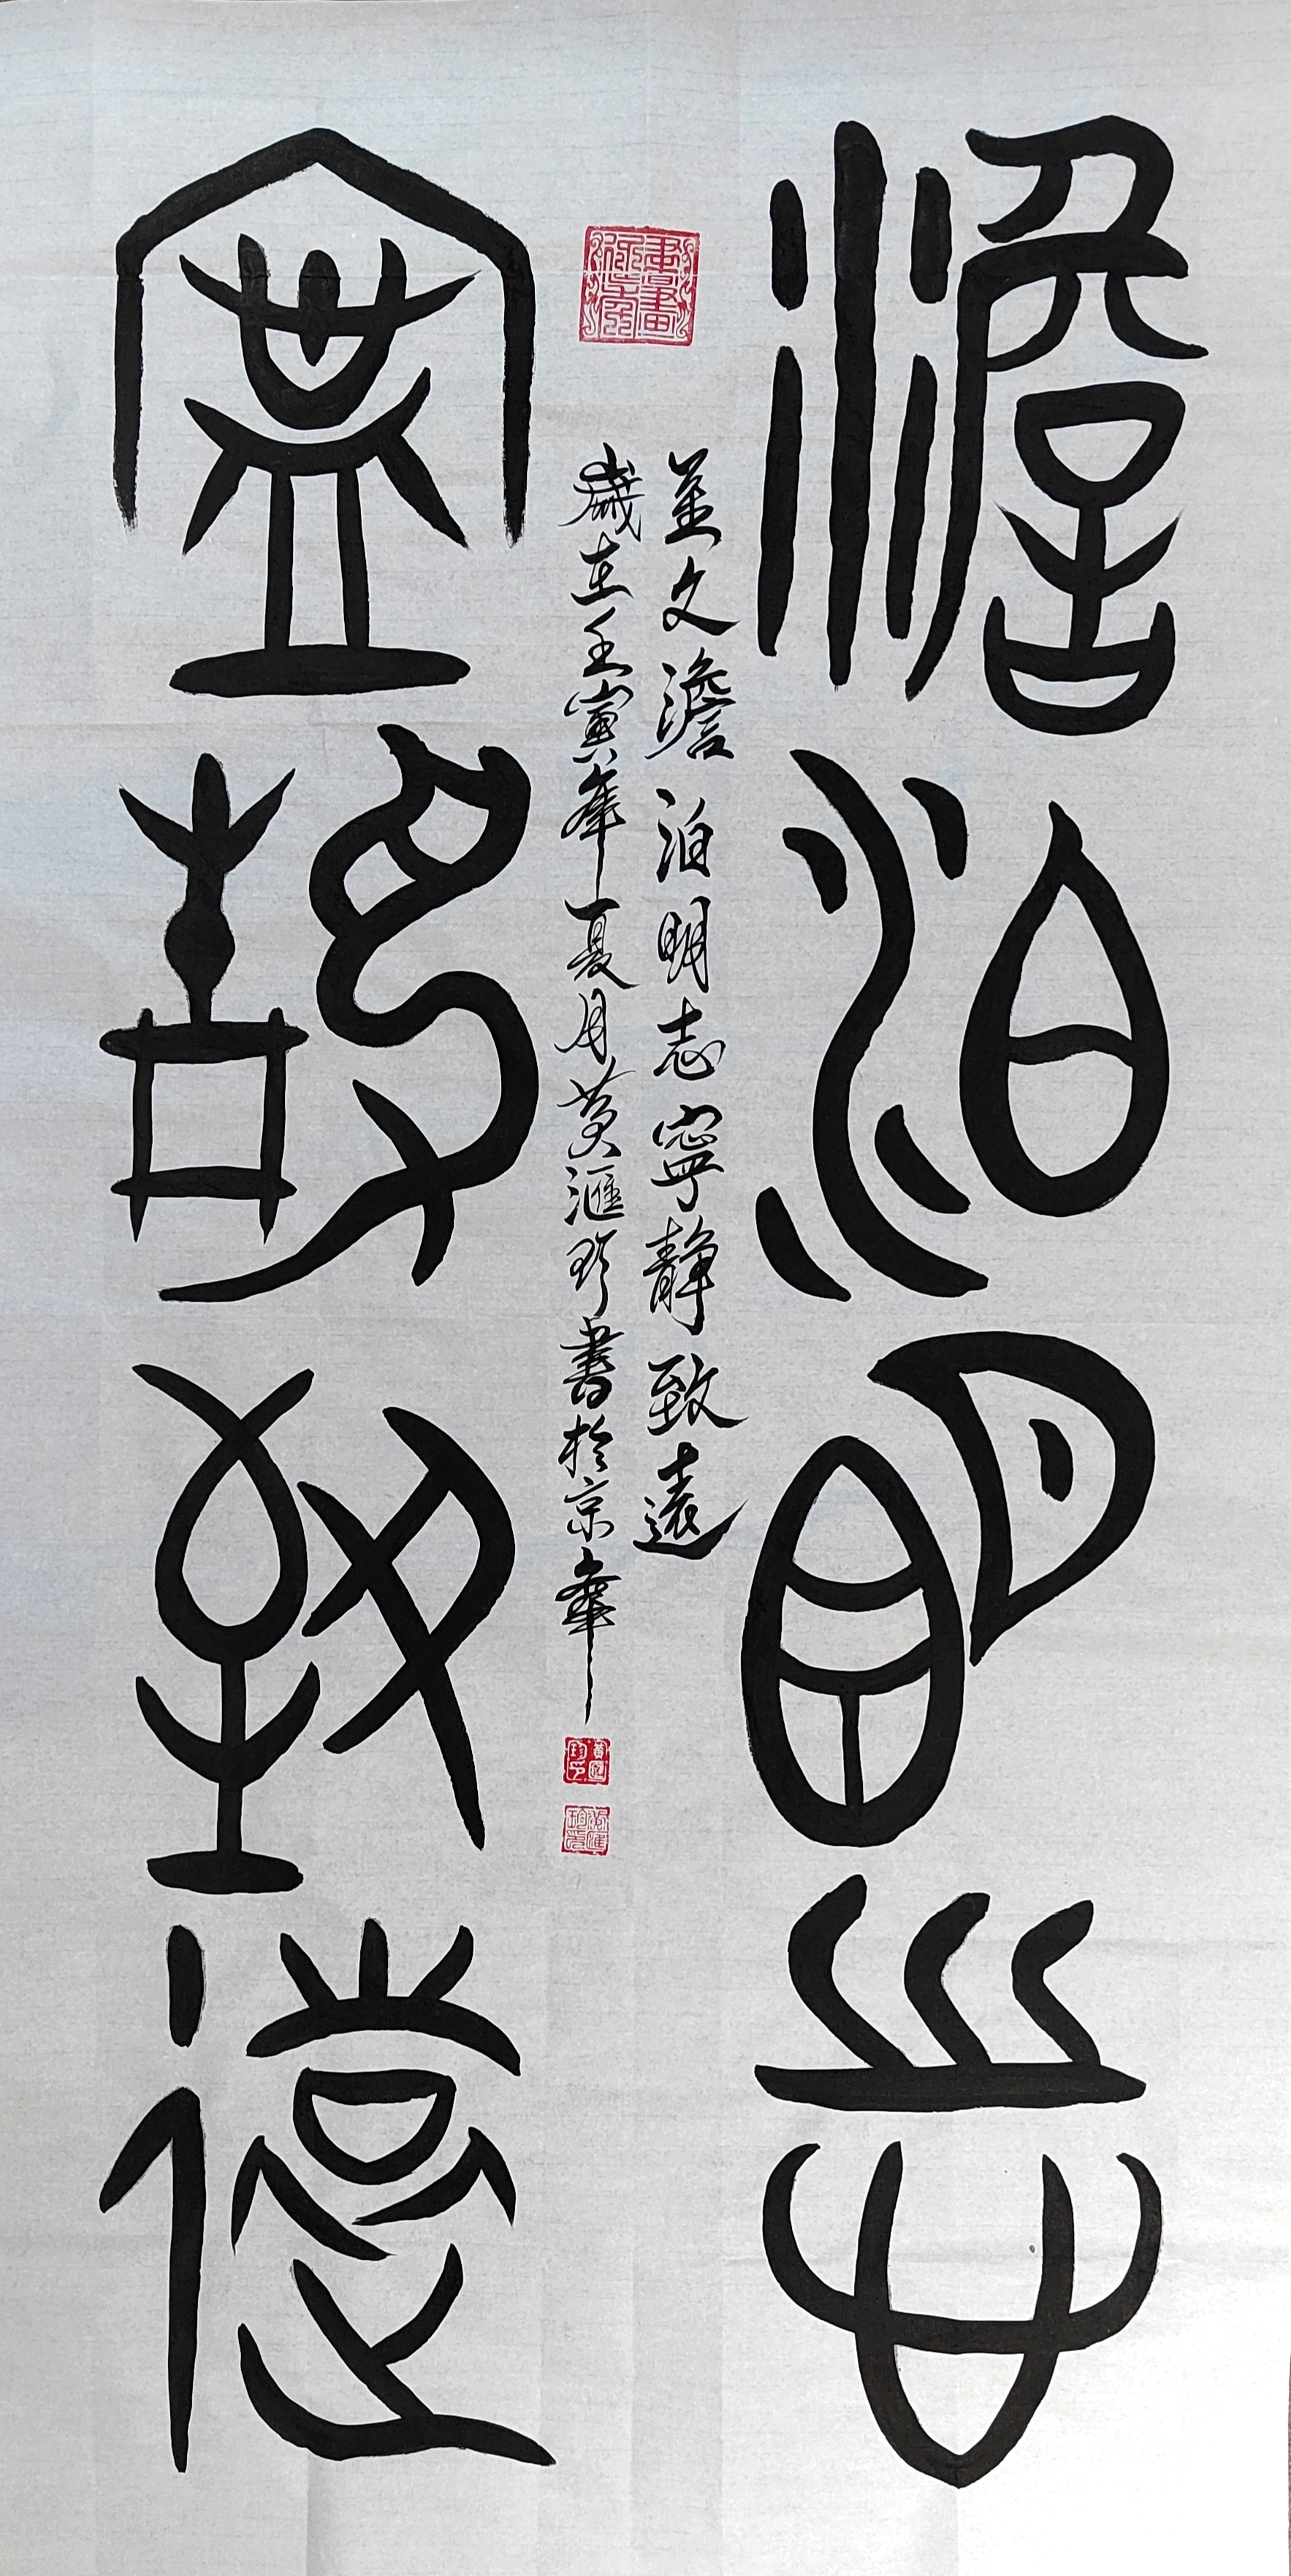 澹泊明志
寧靜致遠
金文澹泊明志寧靜致遠
歲在壬寅年夏月黃滙珍書於京華